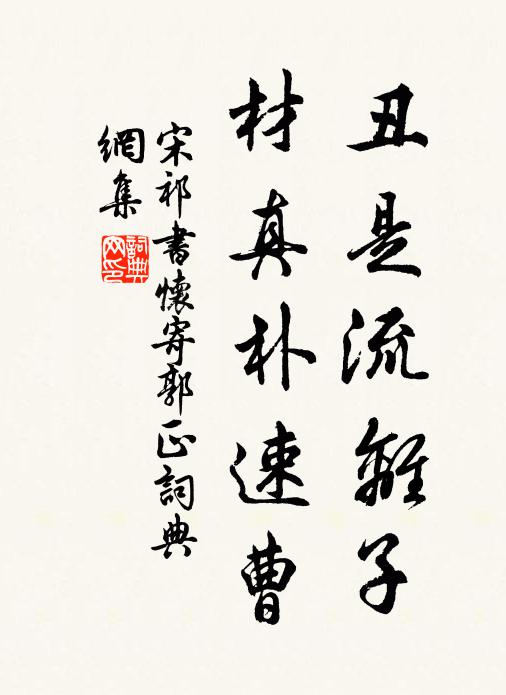 丑是流離子
材真朴速曹
宋祁書懷寄郭正詞典
網集
詞典网印